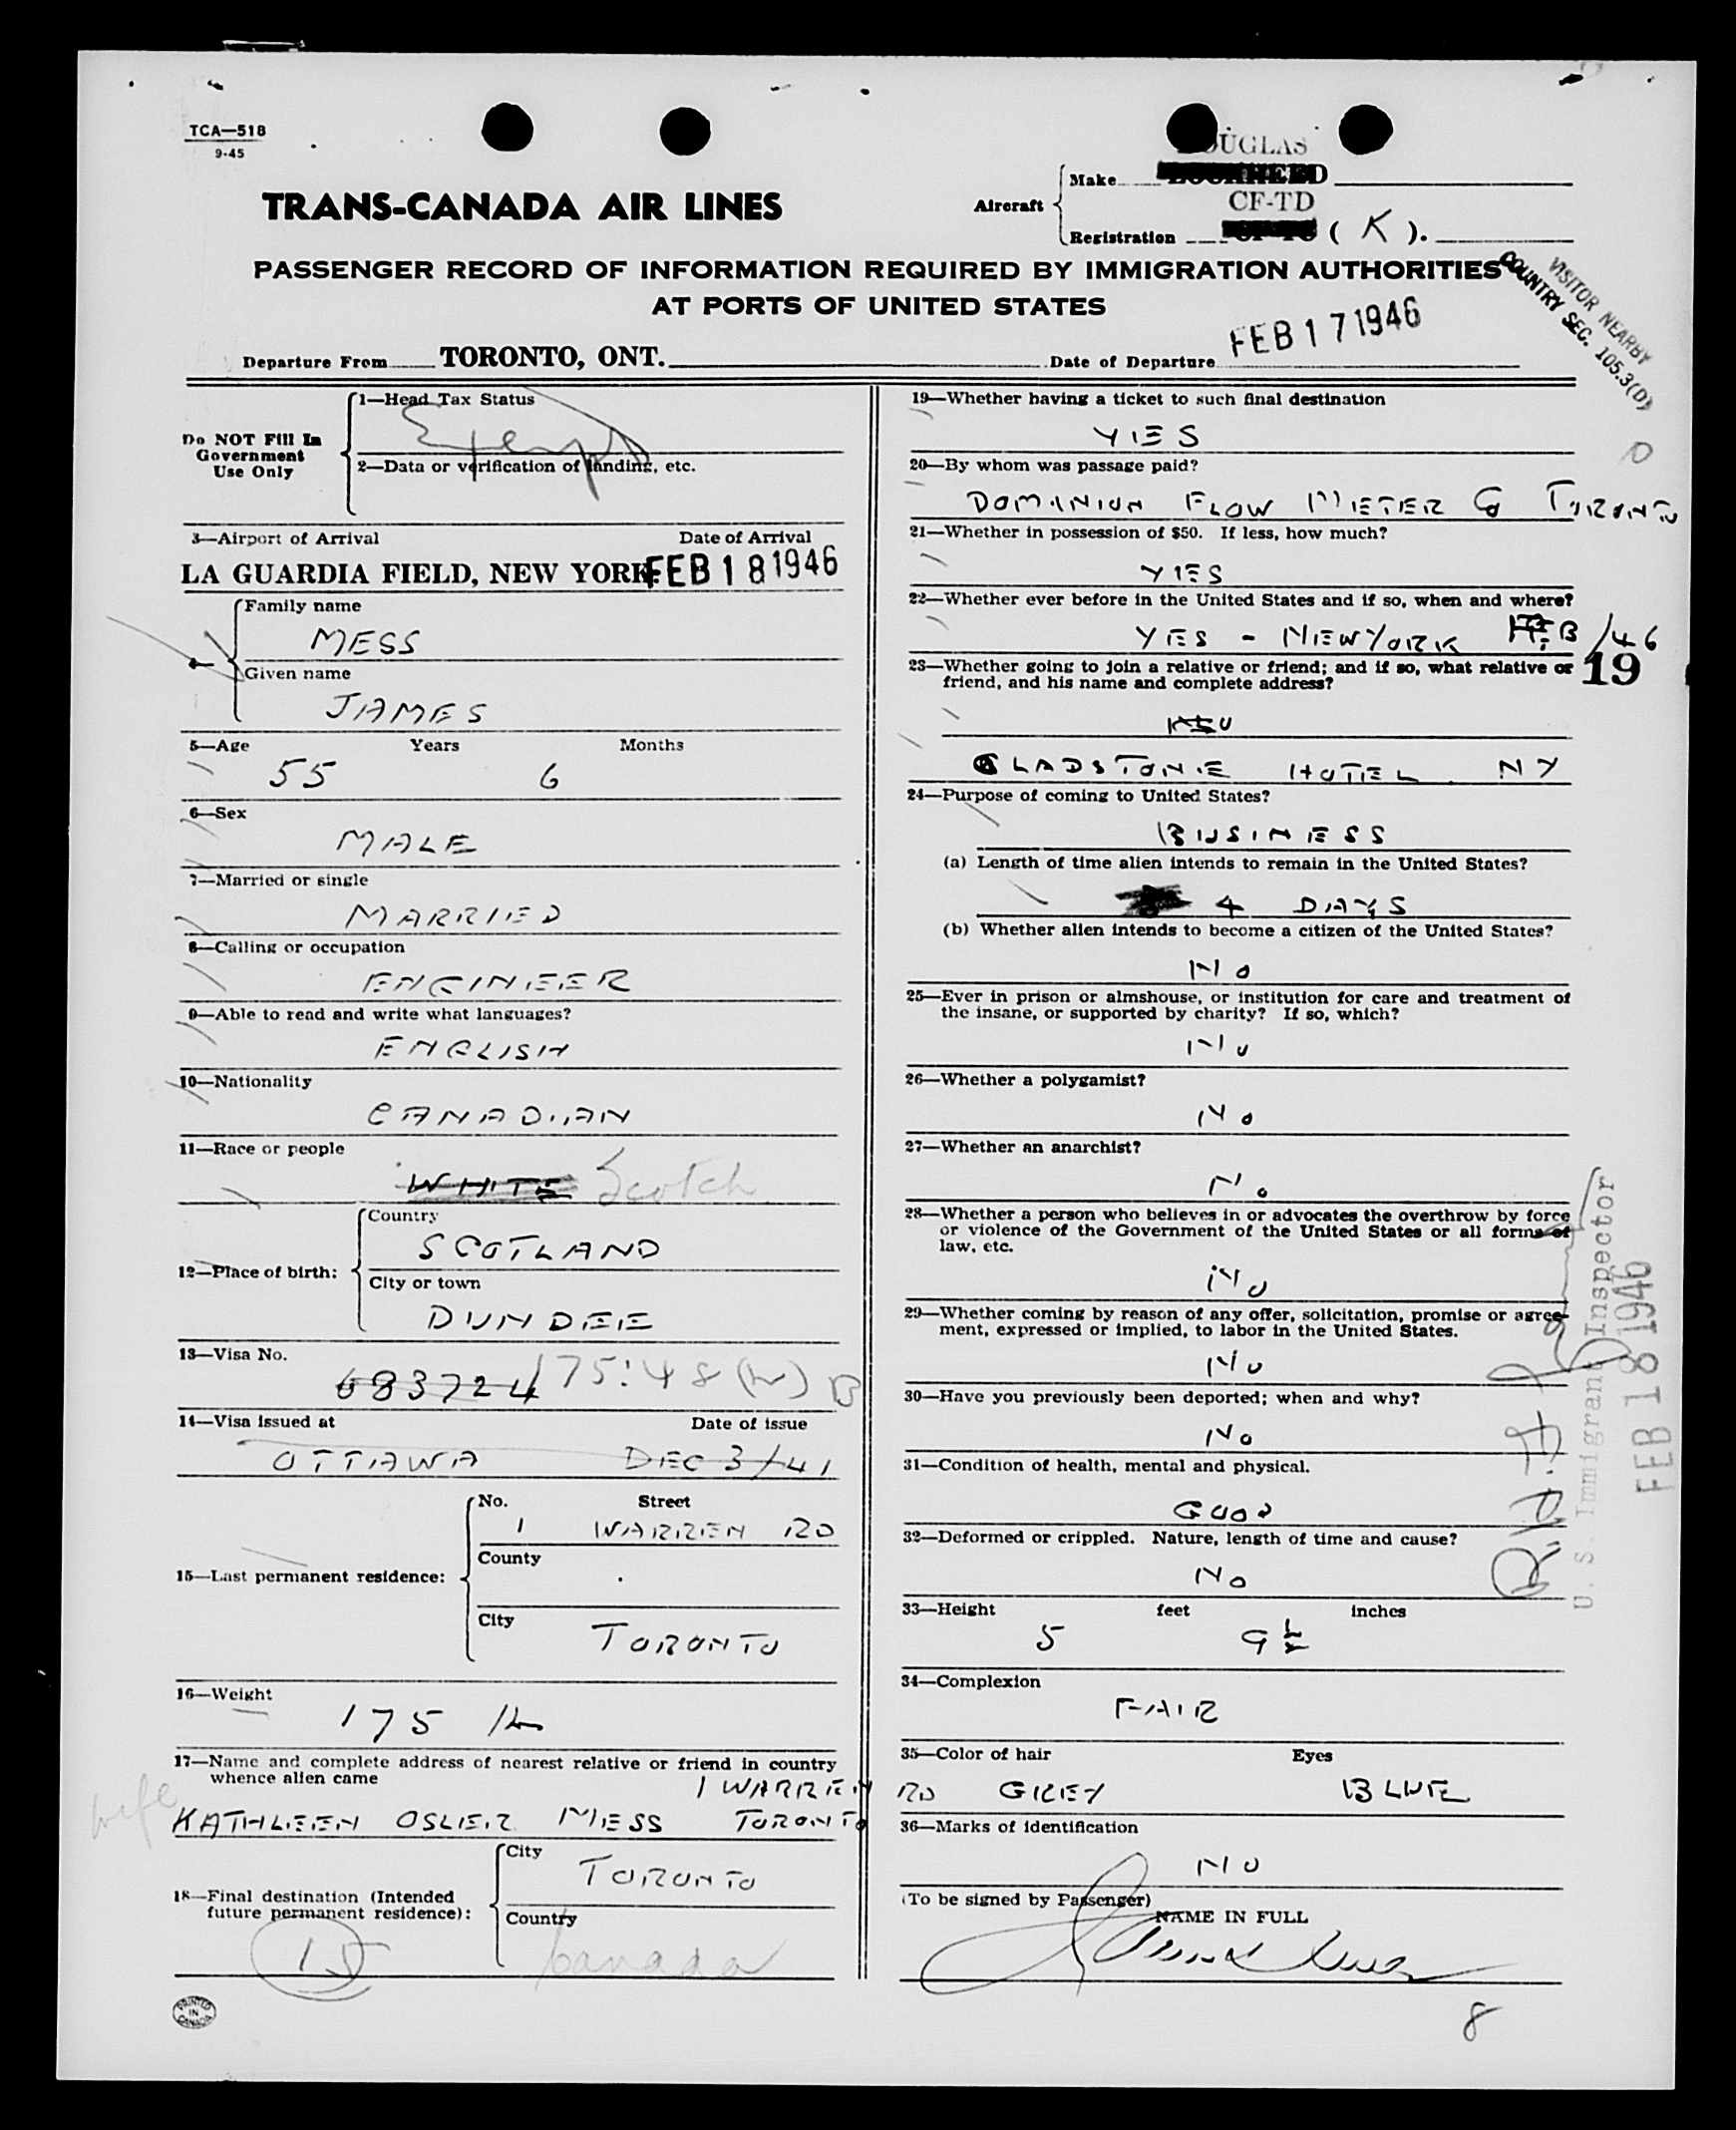 TCA—518
9-45
TRANS-CANADA AIR LINES
Aircraft
DOUGLAS
Make LOCKHEED
CF-TD
Registration CF-TC ( K ).
PASSENGER RECORD OF INFORMATION REQUIRED BY IMMIGRATION AUTHORITIES
AT PORTS OF UNITED STATES
VISITOR NEARBY
COUNTRY SEC. 105.3(D)
Departure From TORONTO, ONT. Date of Departure FEB 17 1946
Do NOT Fill In
Government
Use Only
1—Head Tax Status
Exempt
2—Data or verification of landing, etc.
3—Airport of Arrival Date of Arrival
LA GUARDIA FIELD, NEW YORK FEB 18 1946
4—
Family name
MESS
Given name
JAMES
5—Age Years Months
55 6
6—Sex
MALE
7—Married or single
MARRIED
8—Calling or occupation
ENGINEER
9—Able to read and write what languages?
ENGLISH
10—Nationality
CANADIAN
11—Race or people
WHITE Scotch
12—Place of birth:
Country
SCOTLAND
City or town
DUNDEE
13—Visa No.
683724 175:48 (w) B
14—Visa issued at Date of issue
OTTAWA DEC 3/41
15—Last permanent residence:
No. Street
1 WARREN RD
County
City
TORONTO
16—Weight
175 lb
17—Name and complete address of nearest relative or friend in country
whence alien came
1 WARREN RD
wife
KATHLEEN OSLER MESS TORONTO
18—Final destination (Intended
future permanent residence):
City
TORONTO
Country
Canada
15
PRINTED
IN
CANADA
19—Whether having a ticket to such final destination
YES
0
20—By whom was passage paid?
DOMINION FLOW METER Co TORONTO
21—Whether in possession of $50. If less, how much?
YES
22—Whether ever before in the United States and if so, when and where?
YES - NEW YORK FEB /46
23—Whether going to join a relative or friend; and if so, what relative or
friend, and his name and complete address?
19
NO
GLADSTONE HOTEL NY
24—Purpose of coming to United States?
BUSINESS
(a) Length of time alien intends to remain in the United States?
4 DAYS
(b) Whether alien intends to become a citizen of the United States?
NO
25—Ever in prison or almshouse, or institution for care and treatment of
the insane, or supported by charity? If so, which?
NO
26—Whether a polygamist?
NO
27—Whether an anarchist?
NO
28—Whether a person who believes in or advocates the overthrow by force
or violence of the Government of the United States or all forms of
law, etc.
NO
29—Whether coming by reason of any offer, solicitation, promise or agree-
ment, expressed or implied, to labor in the United States.
NO
30—Have you previously been deported; when and why?
NO
31—Condition of health, mental and physical.
GOOD
32—Deformed or crippled. Nature, length of time and cause?
NO
33—Height feet inches
5 9 1/2
34—Complexion
FAIR
35—Color of hair Eyes
GREY BLUE
36—Marks of identification
NO
(To be signed by Passenger)
NAME IN FULL
James Mess
8
U. S. Immigrant Inspector
FEB 18 1946